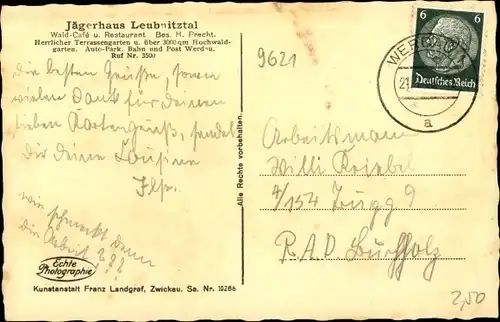 Jägerhaus Leubnitztal
Wald-Café u. Restaurant Bes. H. Precht.
Herrlicher Terrassengarten u. über 3000 qm Hochwald-
garten. Auto-Park. Bahn und Post Werdau.
Ruf Nr. 3500
Die besten Grüße, sowie
vielen Dank für Deinen
lieben Kartengruß, sendet
Dir Deine Cousine
Ilse.
wie schmeckt denn
die Arbeit???
Echte
Photographie
Kunstanstalt Franz Landgraf, Zwickau. Sa. Nr. 10266
Alle Rechte vorbehalten.
9621
6 6
Deutsches Reich
WERDAU
a
Arbeitsmann
Willi
4/154 Zugg 9
R.A.D. Buchholz
2,50